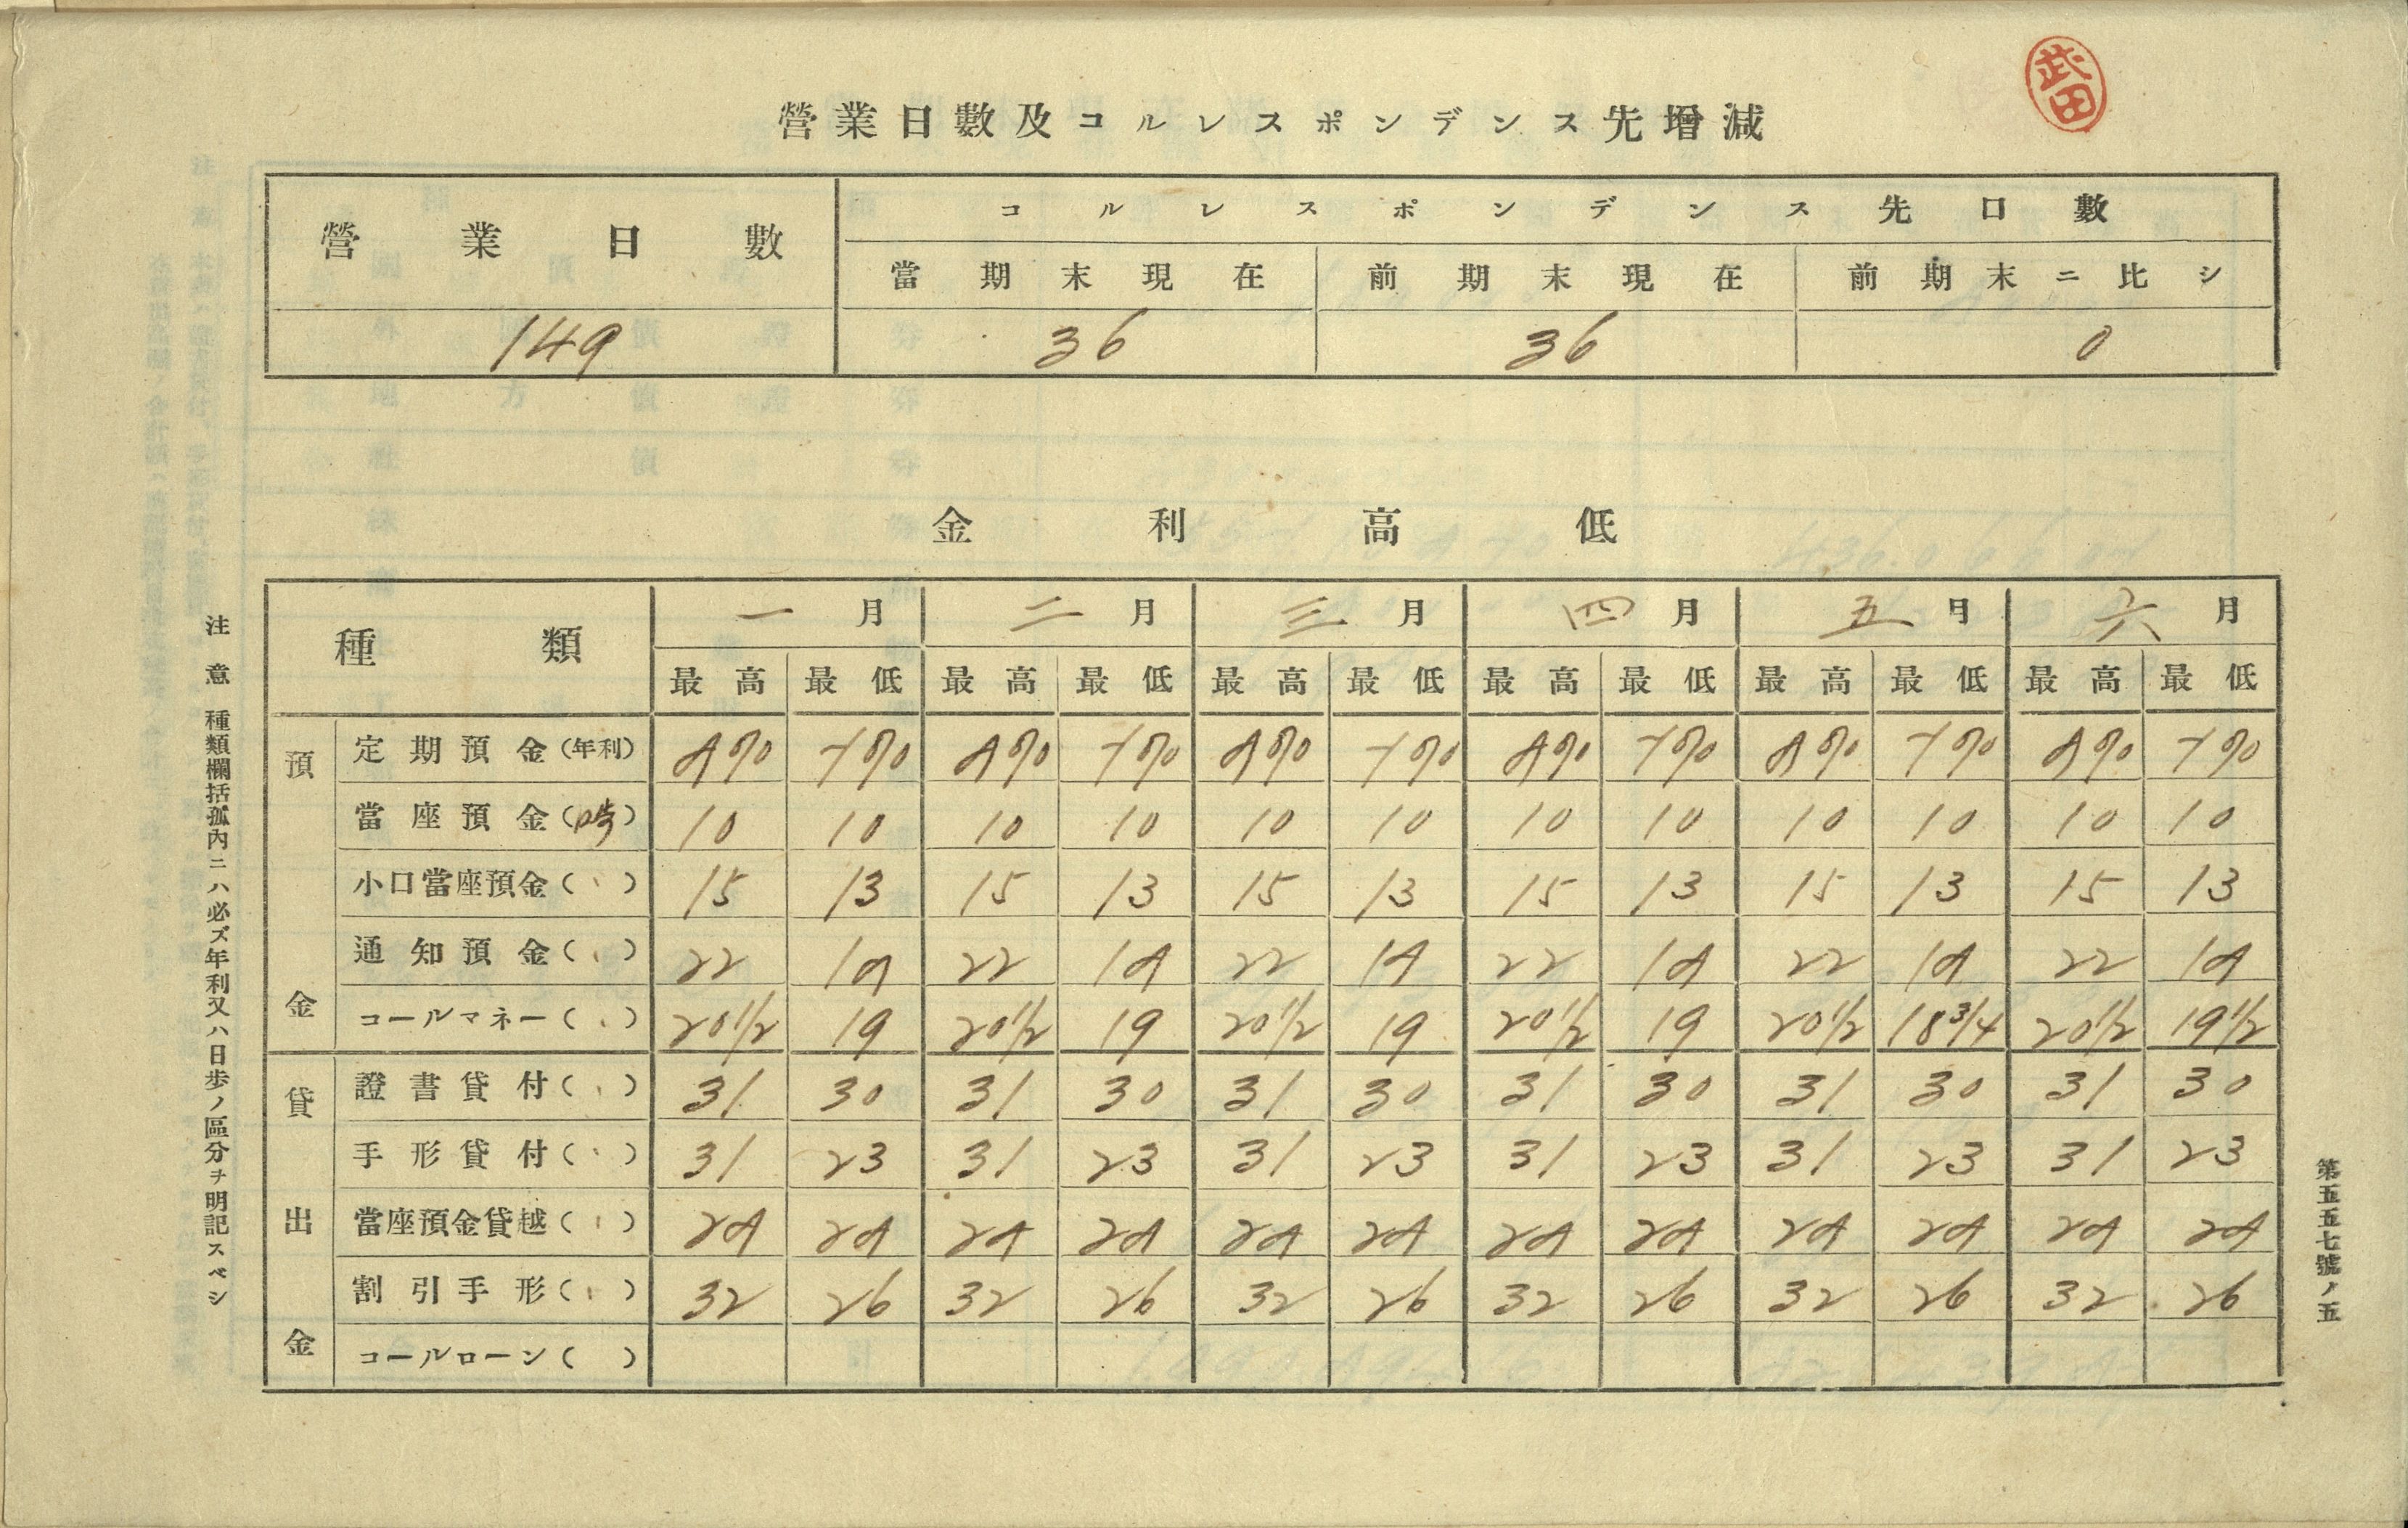 武田
營業日數及コルレスポンデンス先增減
營業日數 コルレスポンデンス先口數
當期末現在 前期末現在 前期末ニ比シ
149 36 36 0
金利高低
種類 一月 二月 三月 四月 五月 六月
最高 最低 最高 最低 最高 最低 最高 最低 最高 最低 最高 最低
預金
定期預金(年利) 8% 7% 8% 7% 8% 7% 8% 7% 8% 7% 8% 7%
當座預金(日歩) 10 10 10 10 10 10 10 10 10 10 10 10
小口當座預金(〃) 15 13 15 13 15 13 15 13 15 13 15 13
通知預金(〃) 22 18 22 18 22 18 22 18 22 18 22 18
コールマネー(〃) 20 1/2 19 20 1/2 19 20 1/2 19 20 1/2 19 20 1/2 18 3/4 20 1/2 19 1/2
貸出金
證書貸付(〃) 31 30 31 30 31 30 31 30 31 30 31 30
手形貸付(〃) 31 23 31 23 31 23 31 23 31 23 31 23
當座預金貸越(〃) 28 28 28 28 28 28 28 28 28 28 28 28
割引手形(〃) 32 26 32 26 32 26 32 26 32 26 32 26
コールローン( )
注意 種類欄括孤內ニハ必ズ年利又ハ日歩ノ區分ヲ明記スベシ
第五五五七號ノ五